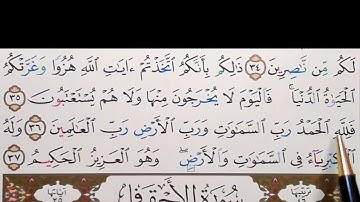 لَكُم مِّن نَّٰصِرِينَ ٣٤ ذَٰلِكُم بِأَنَّكُمُ ٱتَّخَذْتُمْ ءَايَٰتِ ٱللَّهِ هُزُوًا وَغَرَّتْكُمُ
ٱلْحَيَوٰةُ ٱلدُّنْيَا ۚ فَٱلْيَوْمَ لَا يُخْرَجُونَ مِنْهَا وَلَا هُمْ يُسْتَعْتَبُونَ ٣٥
فَلِلَّهِ ٱلْحَمْدُ رَبِّ ٱلسَّمَٰوَٰتِ وَرَبِّ ٱلْأَرْضِ رَبِّ ٱلْعَٰلَمِينَ ٣٦ وَلَهُ
ٱلْكِبْرِيَآءُ فِى ٱلسَّمَٰوَٰتِ وَٱلْأَرْضِ ۖ وَهُوَ ٱلْعَزِيزُ ٱلْحَكِيمُ ٣٧
ترتيبها سُورَةُ الأَحْقَافِ آياتها